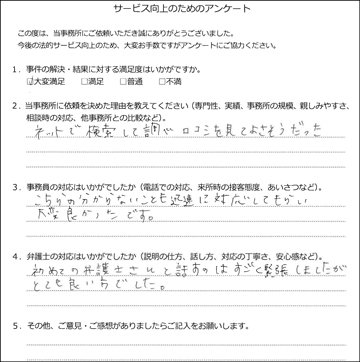 サービス向上のためのアンケート
この度は、当事務所にご依頼いただき誠にありがとうございました。
今後の法的サービス向上のため、大変お手数ですがアンケートにご協力ください。
1．事件の解決・結果に対する満足度はいかがですか。
☑大変満足　□満足　□普通　□不満
2．当事務所に依頼を決めた理由を教えてください（専門性、実績、事務所の規模、親しみやすさ、
相談時の対応、他事務所との比較など）。
ネットで検索して調べ口コミを見てよさそうだった
3．事務員の対応はいかがでしたか（電話での対応、来所時の接客態度、あいさつなど）。
こちらの分からないことも迅速に対応してもらい
大変良かったです。
4．弁護士の対応はいかがでしたか（説明の仕方、話し方、対応の丁寧さ、安心感など）。
初めての弁護士さんと話すのはすごく緊張しましたが
とても良い方でした。
5．その他、ご意見・ご感想がありましたらご記入をお願いします。